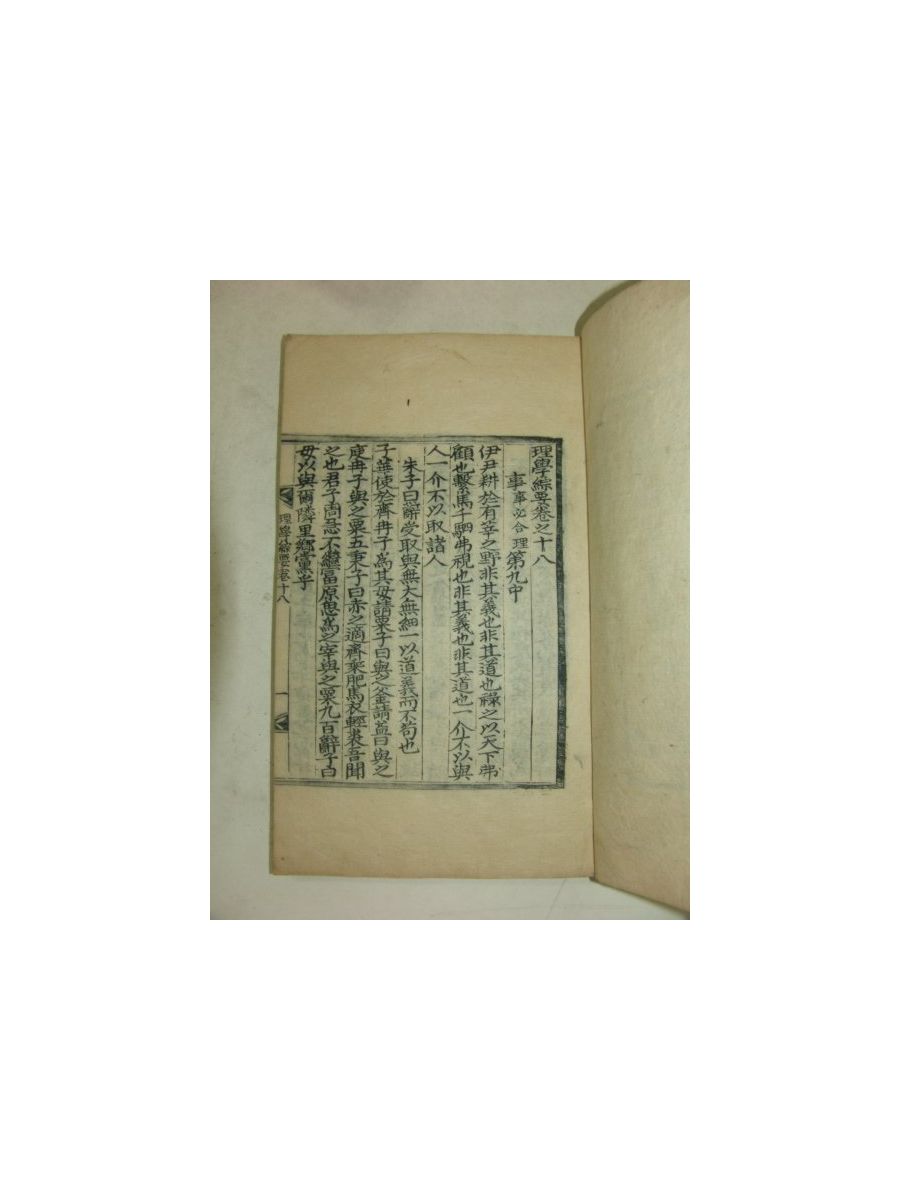 理學綜要卷之十八
事事必合理第九中
伊尹耕於有莘之野非其義也非其道也祿之以天下弗
顧也繫馬千駟弗視也非其義也非其道也一介不以與
人一介不以取諸人
朱子曰辭受取與無大無細一以道義而不苟也
子華使於齊冉子爲其母請粟子曰與之釜請益曰與之
庾冉子與之粟五秉子曰赤之適齊乘肥馬衣輕裘吾聞
之也君子周急不繼富原思爲之宰與之粟九百辭子曰
毋以與爾隣里鄕黨乎
理學綜要卷十八 一